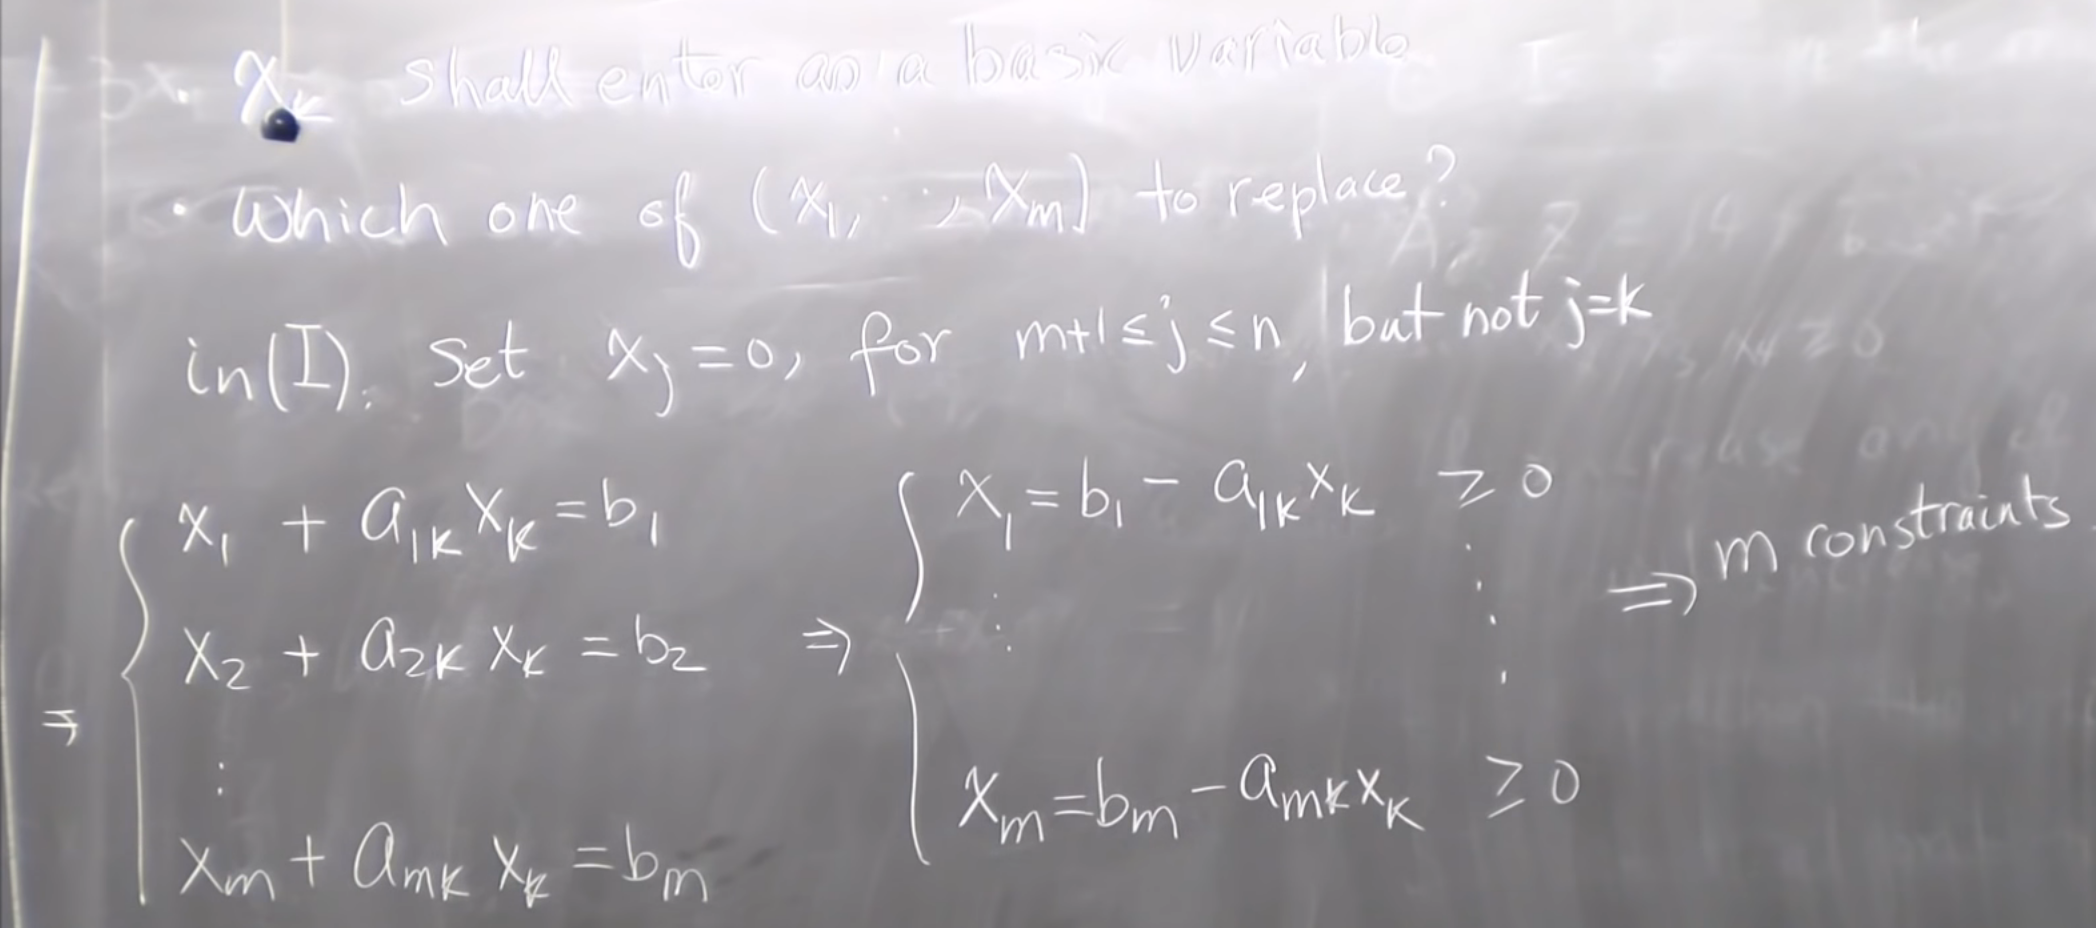 x_k shall enter as a basic variable
• Which one of (x_1, .., x_m) to replace?
in (I). Set x_j = 0, for m+1 ≤ j ≤ n, but not j=k
x_1 + a_{1k} x_k = b_1
x_2 + a_{2k} x_k = b_2
⇒
⋮
x_m + a_{mk} x_k = b_m
⇒
x_1 = b_1 - a_{1k} x_k ≥ 0
⋮ ⋮
x_m = b_m - a_{mk} x_k ≥ 0
⇒ m constraints